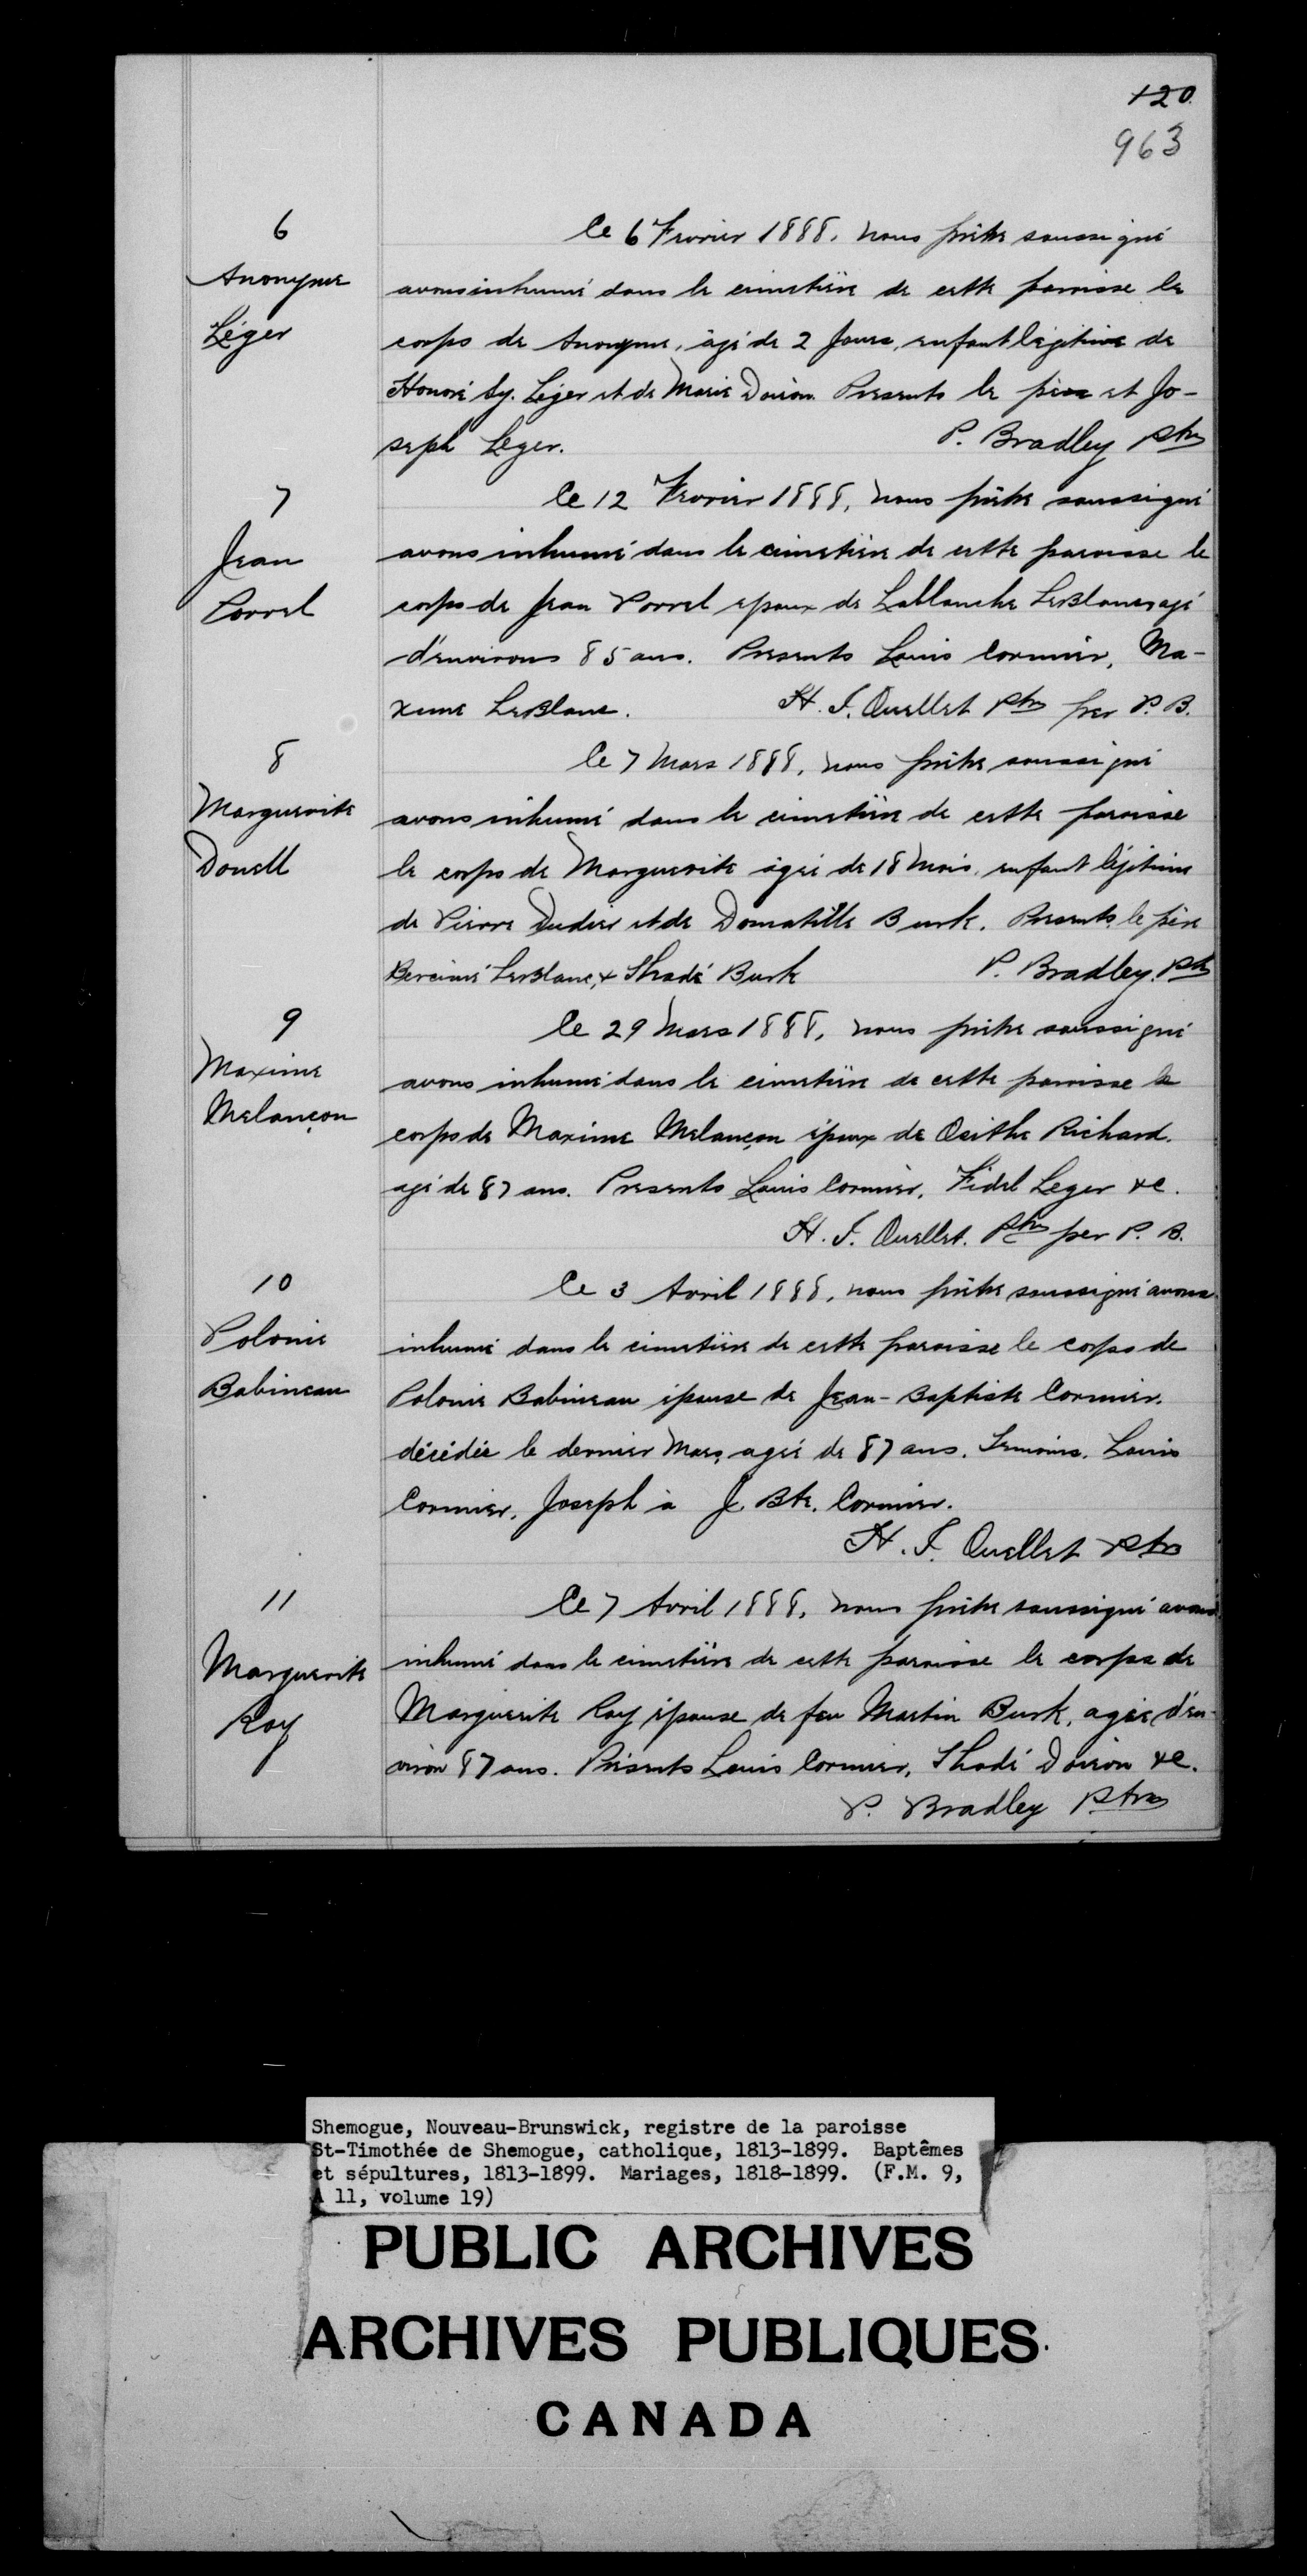 120.
963
6
Anonyme
Léger
Le 6 Fevrier 1888, nous prêtre soussigné
avons inhumé dans le cimetière de cette paroisse le
corps de Anonyme, âgé de 2 Jours, enfant légitime de
Honoré Sy. Léger et de Marie Doiron. Presents le père et Jo-
seph Leger. P. Bradley Ptre
7
Jean
Porrel
Le 12 Fevrier 1888, nous prêtre soussigné
avons inhumé dans le cimetière de cette paroisse le
corps de Jean Porrel epoux de Lablanche LeBlanc, agé
d'environs 85 ans. Presents Louis Cormier, Ma-
xime LeBlanc. H. J. Ouellet Ptre per P. B.
8
Marguerite
Donell
Le 7 Mars 1888, nous prêtre soussigné
avons inhumé dans le cimetière de cette paroisse
le corps de Marguerite âgée de 18 Mois, enfant légitime
de Pierre Didier et de Domatille Burk. Presents, le père
LeBlanc, & Thadé Burk P. Bradley. Ptre
9
Maxime
Melançon
Le 29 Mars 1888, nous prêtre soussigné
avons inhumé dans le cimetière de cette paroisse le
corps de Maxime Melançon époux de Osithe Richard.
agé de 87 ans. Presents Louis Cormier, Fidel Leger &c.
H. J. Ouellet. Ptre per P. B.
10
Polonie
Babineau
Le 3 Avril 1888, nous prêtre soussigné avons
inhumé dans le cimetière de cette paroisse le corps de
Polonie Babineau épouse de Jean-Baptiste Cormier.
décédée le dernier Mars, agée de 87 ans. Temoins. Louis
Cormier, Joseph à J. Bte. Cormier.
H. J. Ouellet Ptre
11
Marguerite
Roy
Le 7 Avril 1888, nous prêtre soussigné avons
inhumé dans le cimetière de cette paroisse le corps de
Marguerite Roy épouse de feu Martin Burk, agée d'en-
viron 87 ans. Présents Louis Cormier, Thadé Doiron &c.
P. Bradley Ptre
Shemogue, Nouveau-Brunswick, registre de la paroisse
St-Timothée de Shemogue, catholique, 1813-1899. Baptêmes
et sépultures, 1813-1899. Mariages, 1818-1899. (F.M. 9,
A 11, volume 19)
PUBLIC ARCHIVES
ARCHIVES PUBLIQUES
CANADA